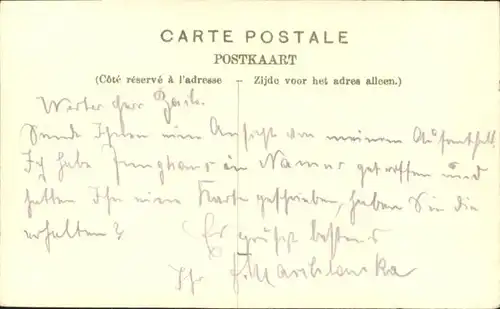 CARTE POSTALE
POSTKAART
(Côté réservé à l'adresse – Zijde voor het adres alleen.)
Werter Herr
Sende Ihnen eine Ansicht von meinem Aufenthalt.
Ich habe Junghans in Namur getroffen und
hatten Ihn eine Karte geschrieben, haben Sie die
erhalten?
Es grüßt bestens
Ihr